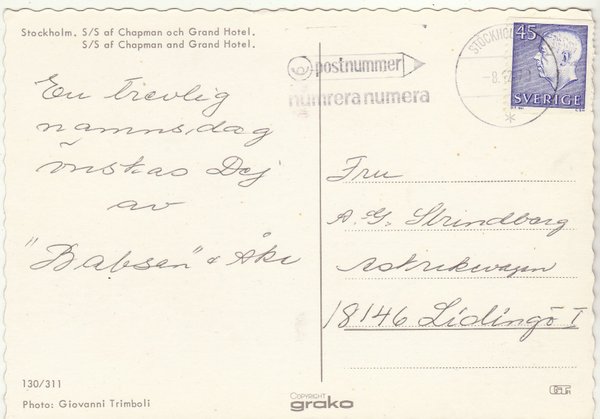 Stockholm. S/S af Chapman och Grand Hotel.
S/S af Chapman and Grand Hotel.
postnummer
numrera numera
STOCKHO
-8.
45
SVERIGE
En trevlig
namnsdag
önskas Dej
av
"Babsen" & Åke
Fru
A. G. Strindberg
18146 Lidingö 1
130/311
Photo: Giovanni Trimboli
COPYRIGHT
grako